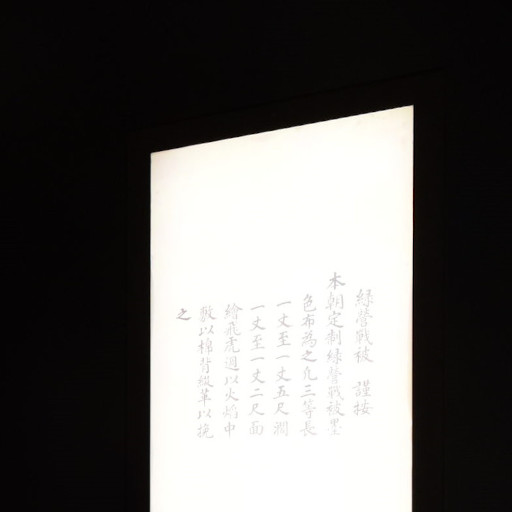 綠營戰被 謹按
本朝定制綠營戰被墨
色布為之凡三等長
一丈至一丈五尺濶
一丈至一丈二尺面
繪飛虎週以火焰中
敷以棉背綴革以挽
之